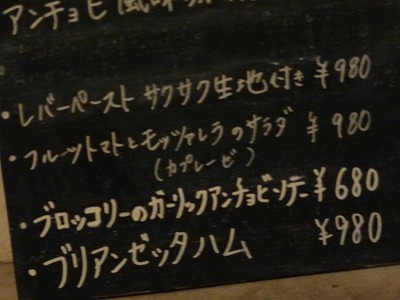 アンチョビ風味
・レバーペースト サクサク生地付き ¥980
・フルーツトマトとモッツァレラのサラダ ¥980
(カプレーゼ)
・ブロッコリーのガーリックアンチョビソテー ¥680
・ブリアンゼッタハム ¥980